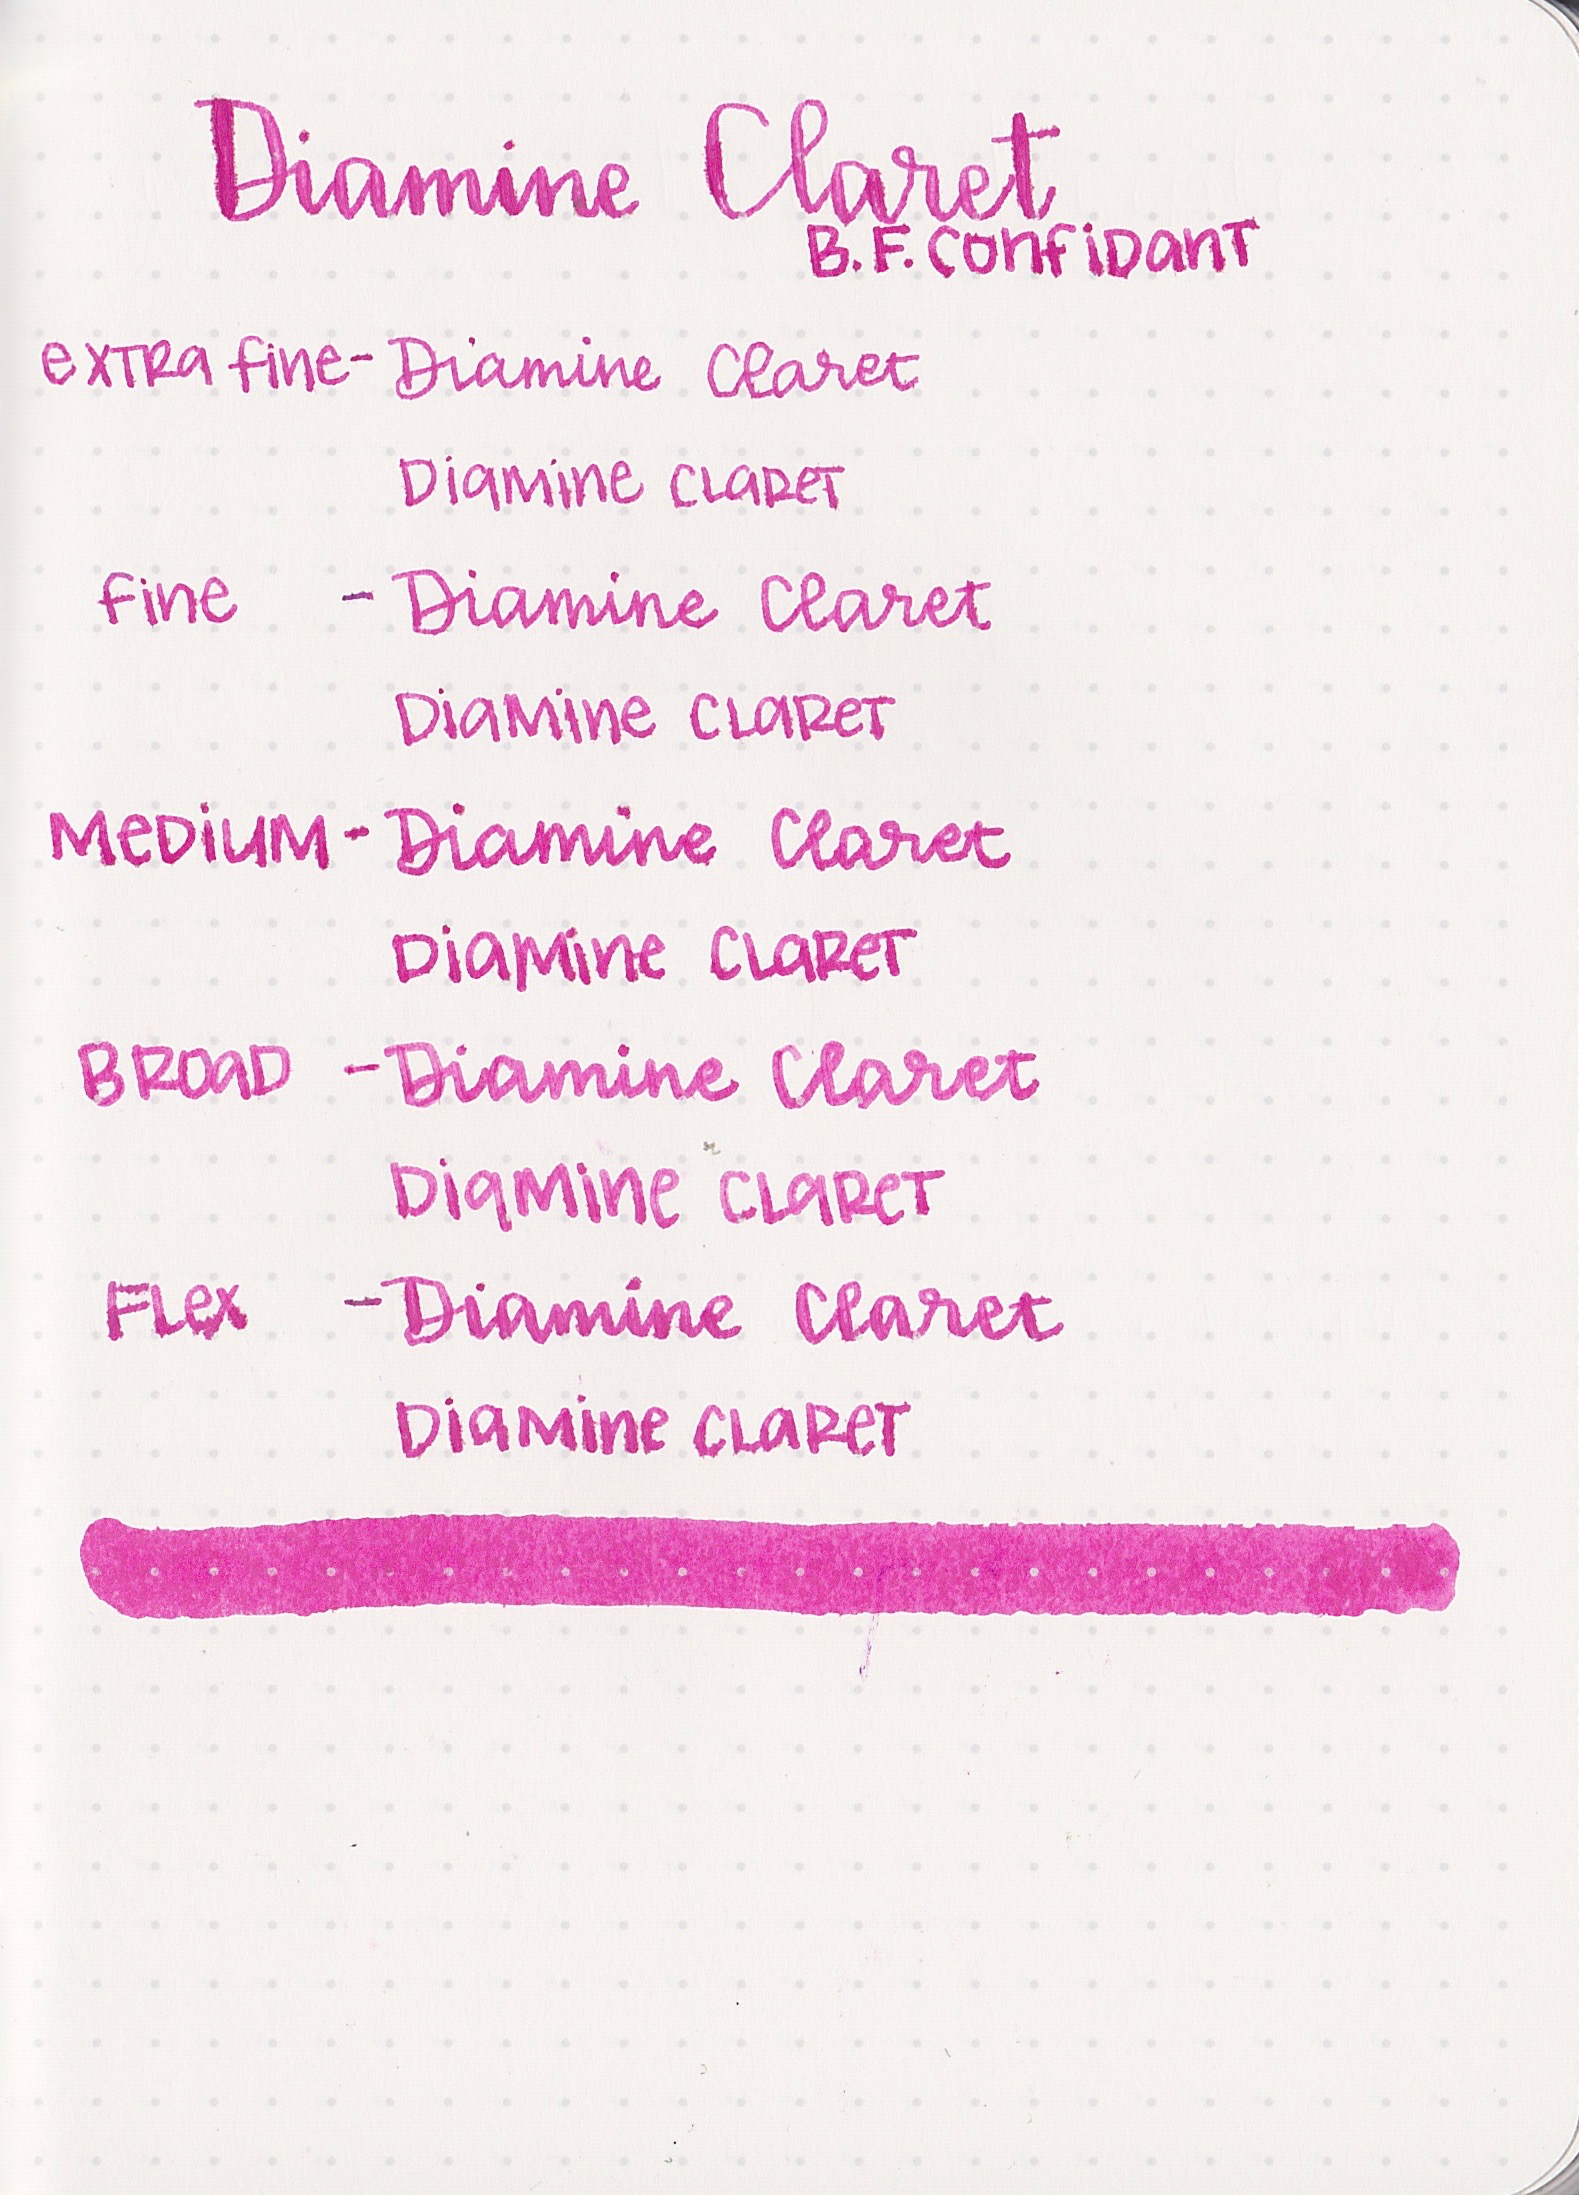 Diamine Claret
B.F. Confidant
extra fine - Diamine Claret
Diamine Claret
fine - Diamine Claret
Diamine Claret
Medium - Diamine Claret
Diamine Claret
Broad - Diamine Claret
Diamine Claret
Flex - Diamine Claret
Diamine Claret